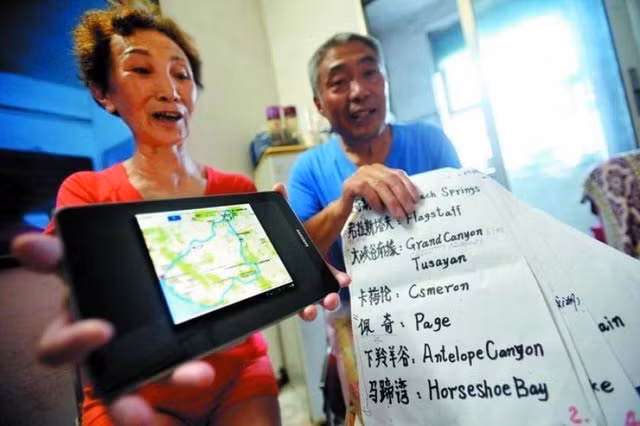 ach Springs
弗拉斯塔夫: Flagstaff
大峡谷南缘: Grand Canyon
Tusayan
卡梅伦: Csmeron
佩奇: Page
下羚羊谷: Antelope Canyon
马蹄湾: Horseshoe Bay
2.
ain
ke
SAMSUNG